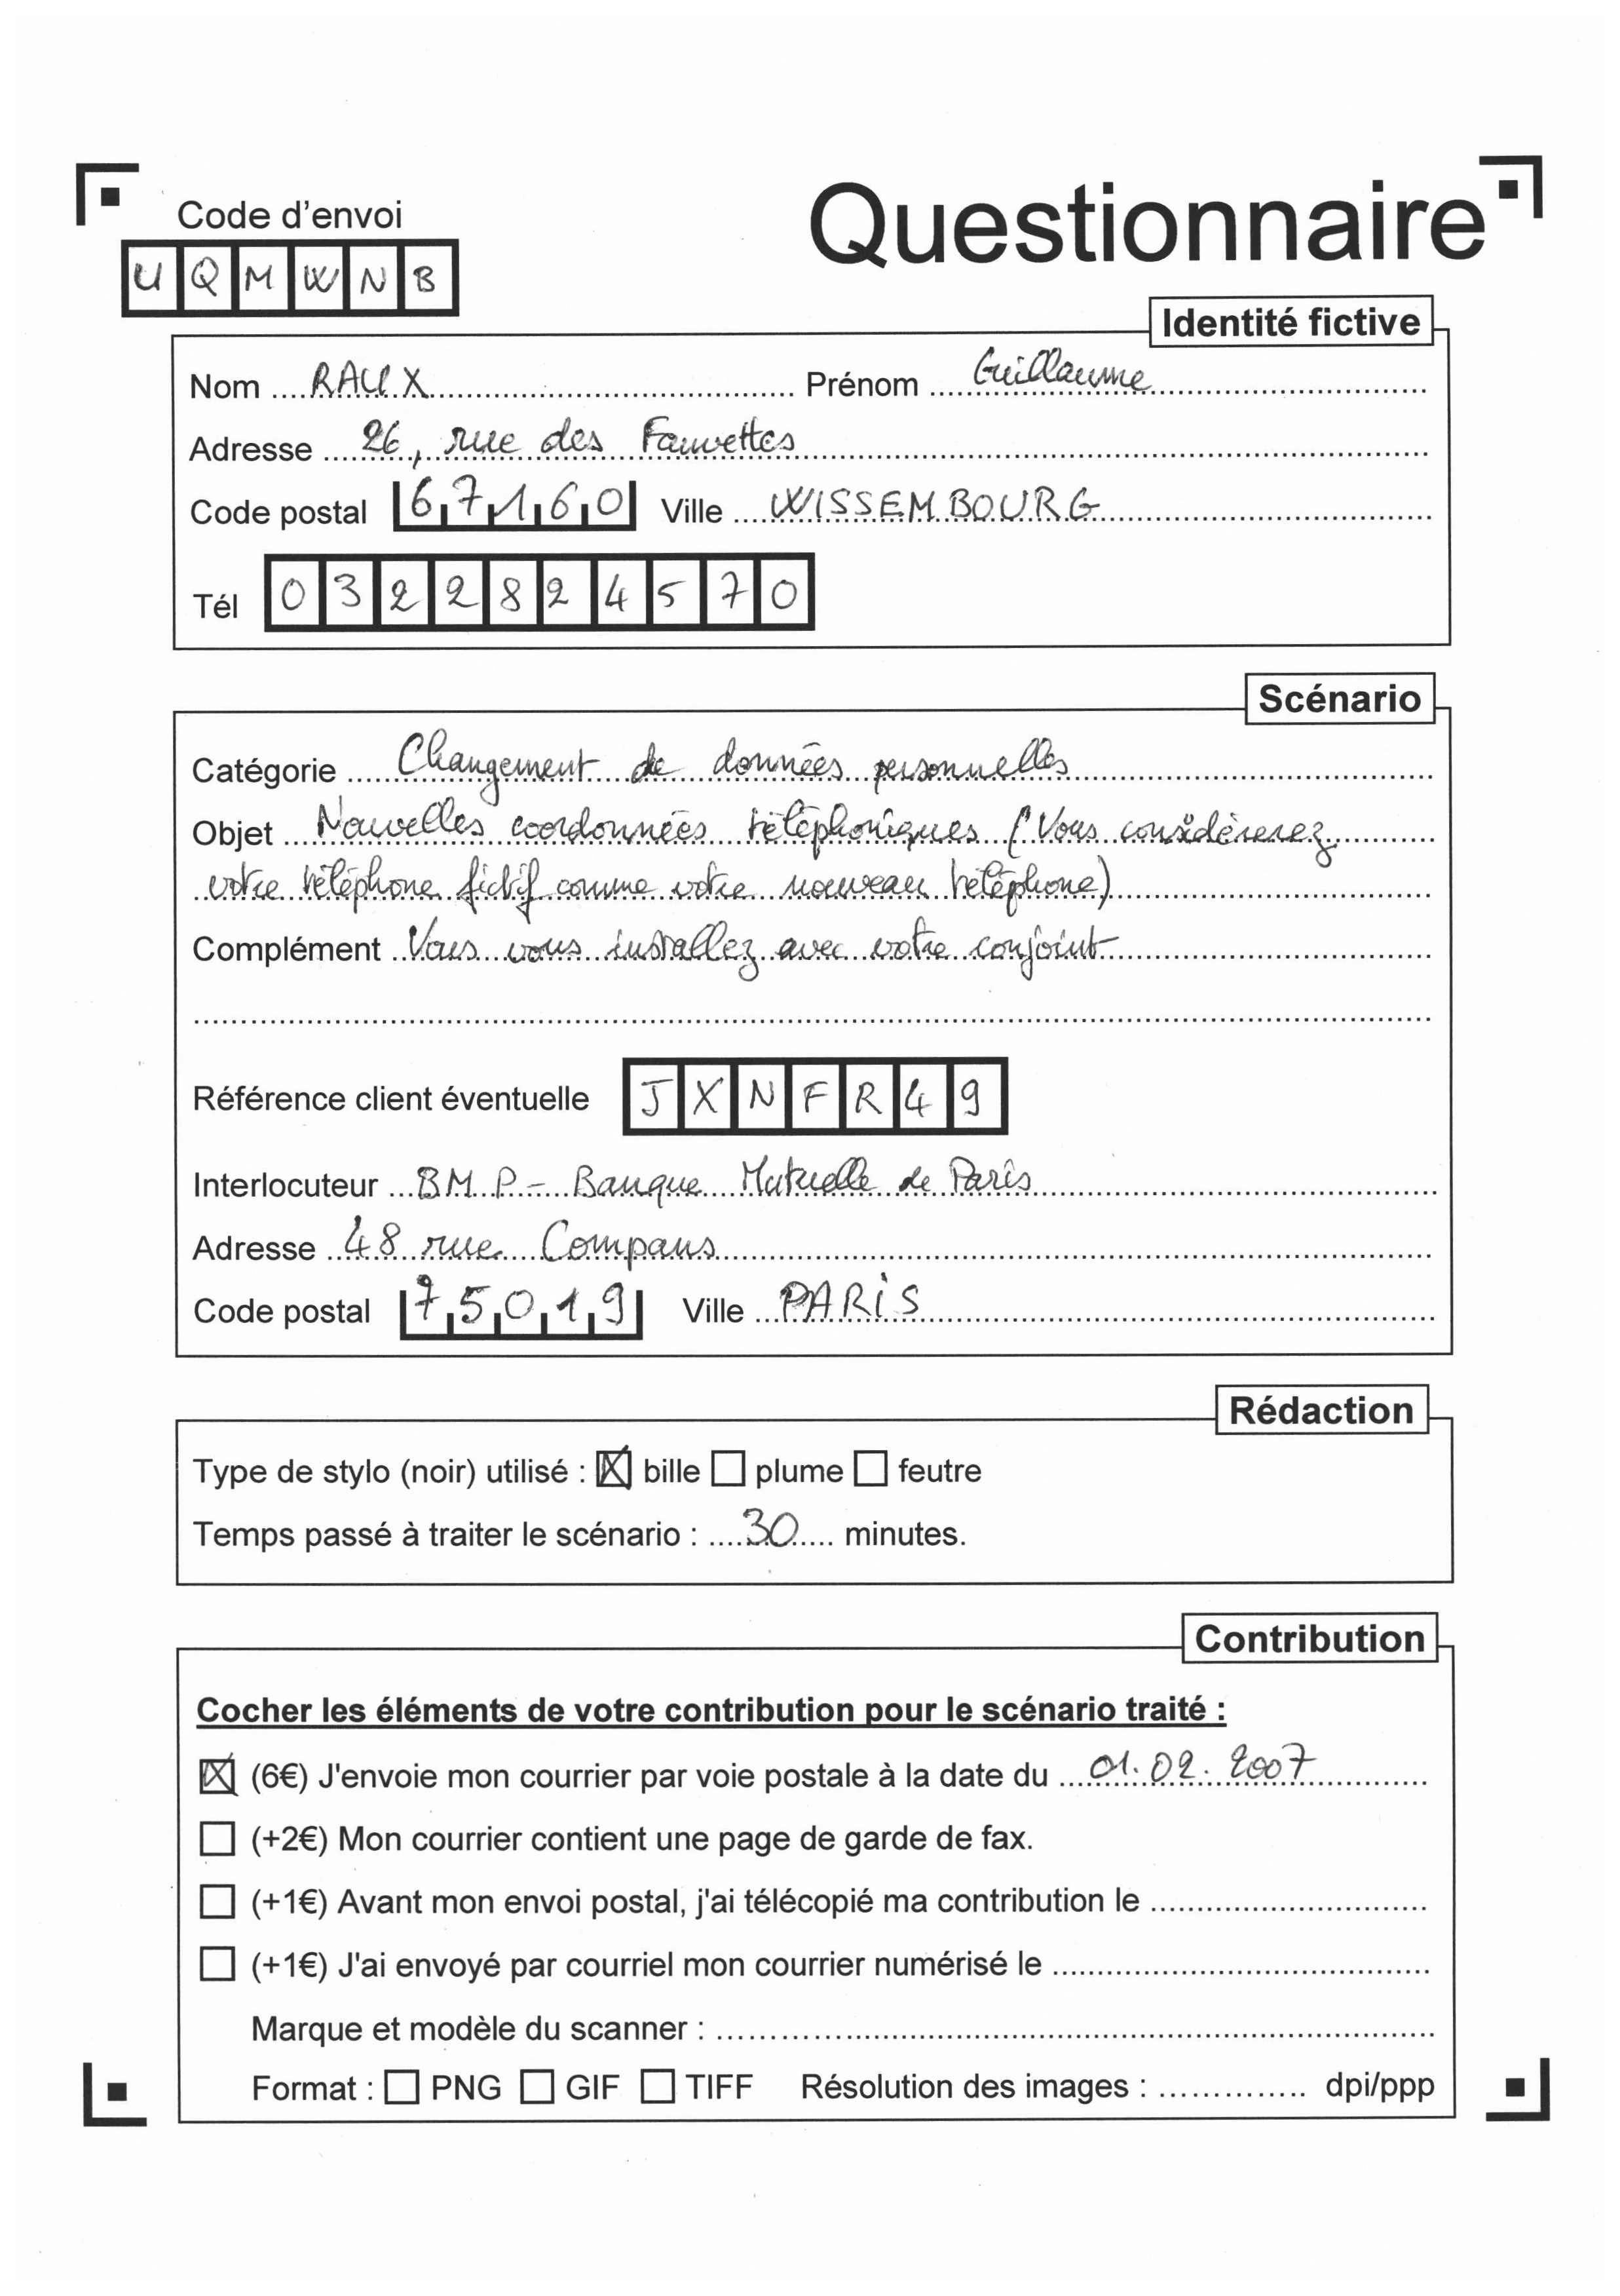 Code d'envoi
Questionnaire
UQMWNB
Identité fictive
Nom RAUX Prénom Guillaume
Adresse 26, rue des Fauvettes
Code postal 67160 Ville WISSEMBOURG
Tél 0322824570
Scénario
Catégorie Changement de données personnelles
Objet Nouvelles coordonnées téléphoniques (Vous considérerez
votre téléphone fictif comme votre nouveau téléphone)
Complément Vous vous installez avec votre conjoint
Référence client éventuelle JXNFR49
Interlocuteur BMP - Banque Mutuelle de Paris
Adresse 48 rue Compans
Code postal 75019 Ville PARIS
Rédaction
Type de stylo (noir) utilisé : ☒ bille ☐ plume ☐ feutre
Temps passé à traiter le scénario : 30 minutes.
Contribution
Cocher les éléments de votre contribution pour le scénario traité :
☒ (6€) J'envoie mon courrier par voie postale à la date du 01.02.2007
☐ (+2€) Mon courrier contient une page de garde de fax.
☐ (+1€) Avant mon envoi postal, j'ai télécopié ma contribution le
☐ (+1€) J'ai envoyé par courriel mon courrier numérisé le
Marque et modèle du scanner :
Format : ☐ PNG ☐ GIF ☐ TIFF Résolution des images : dpi/ppp